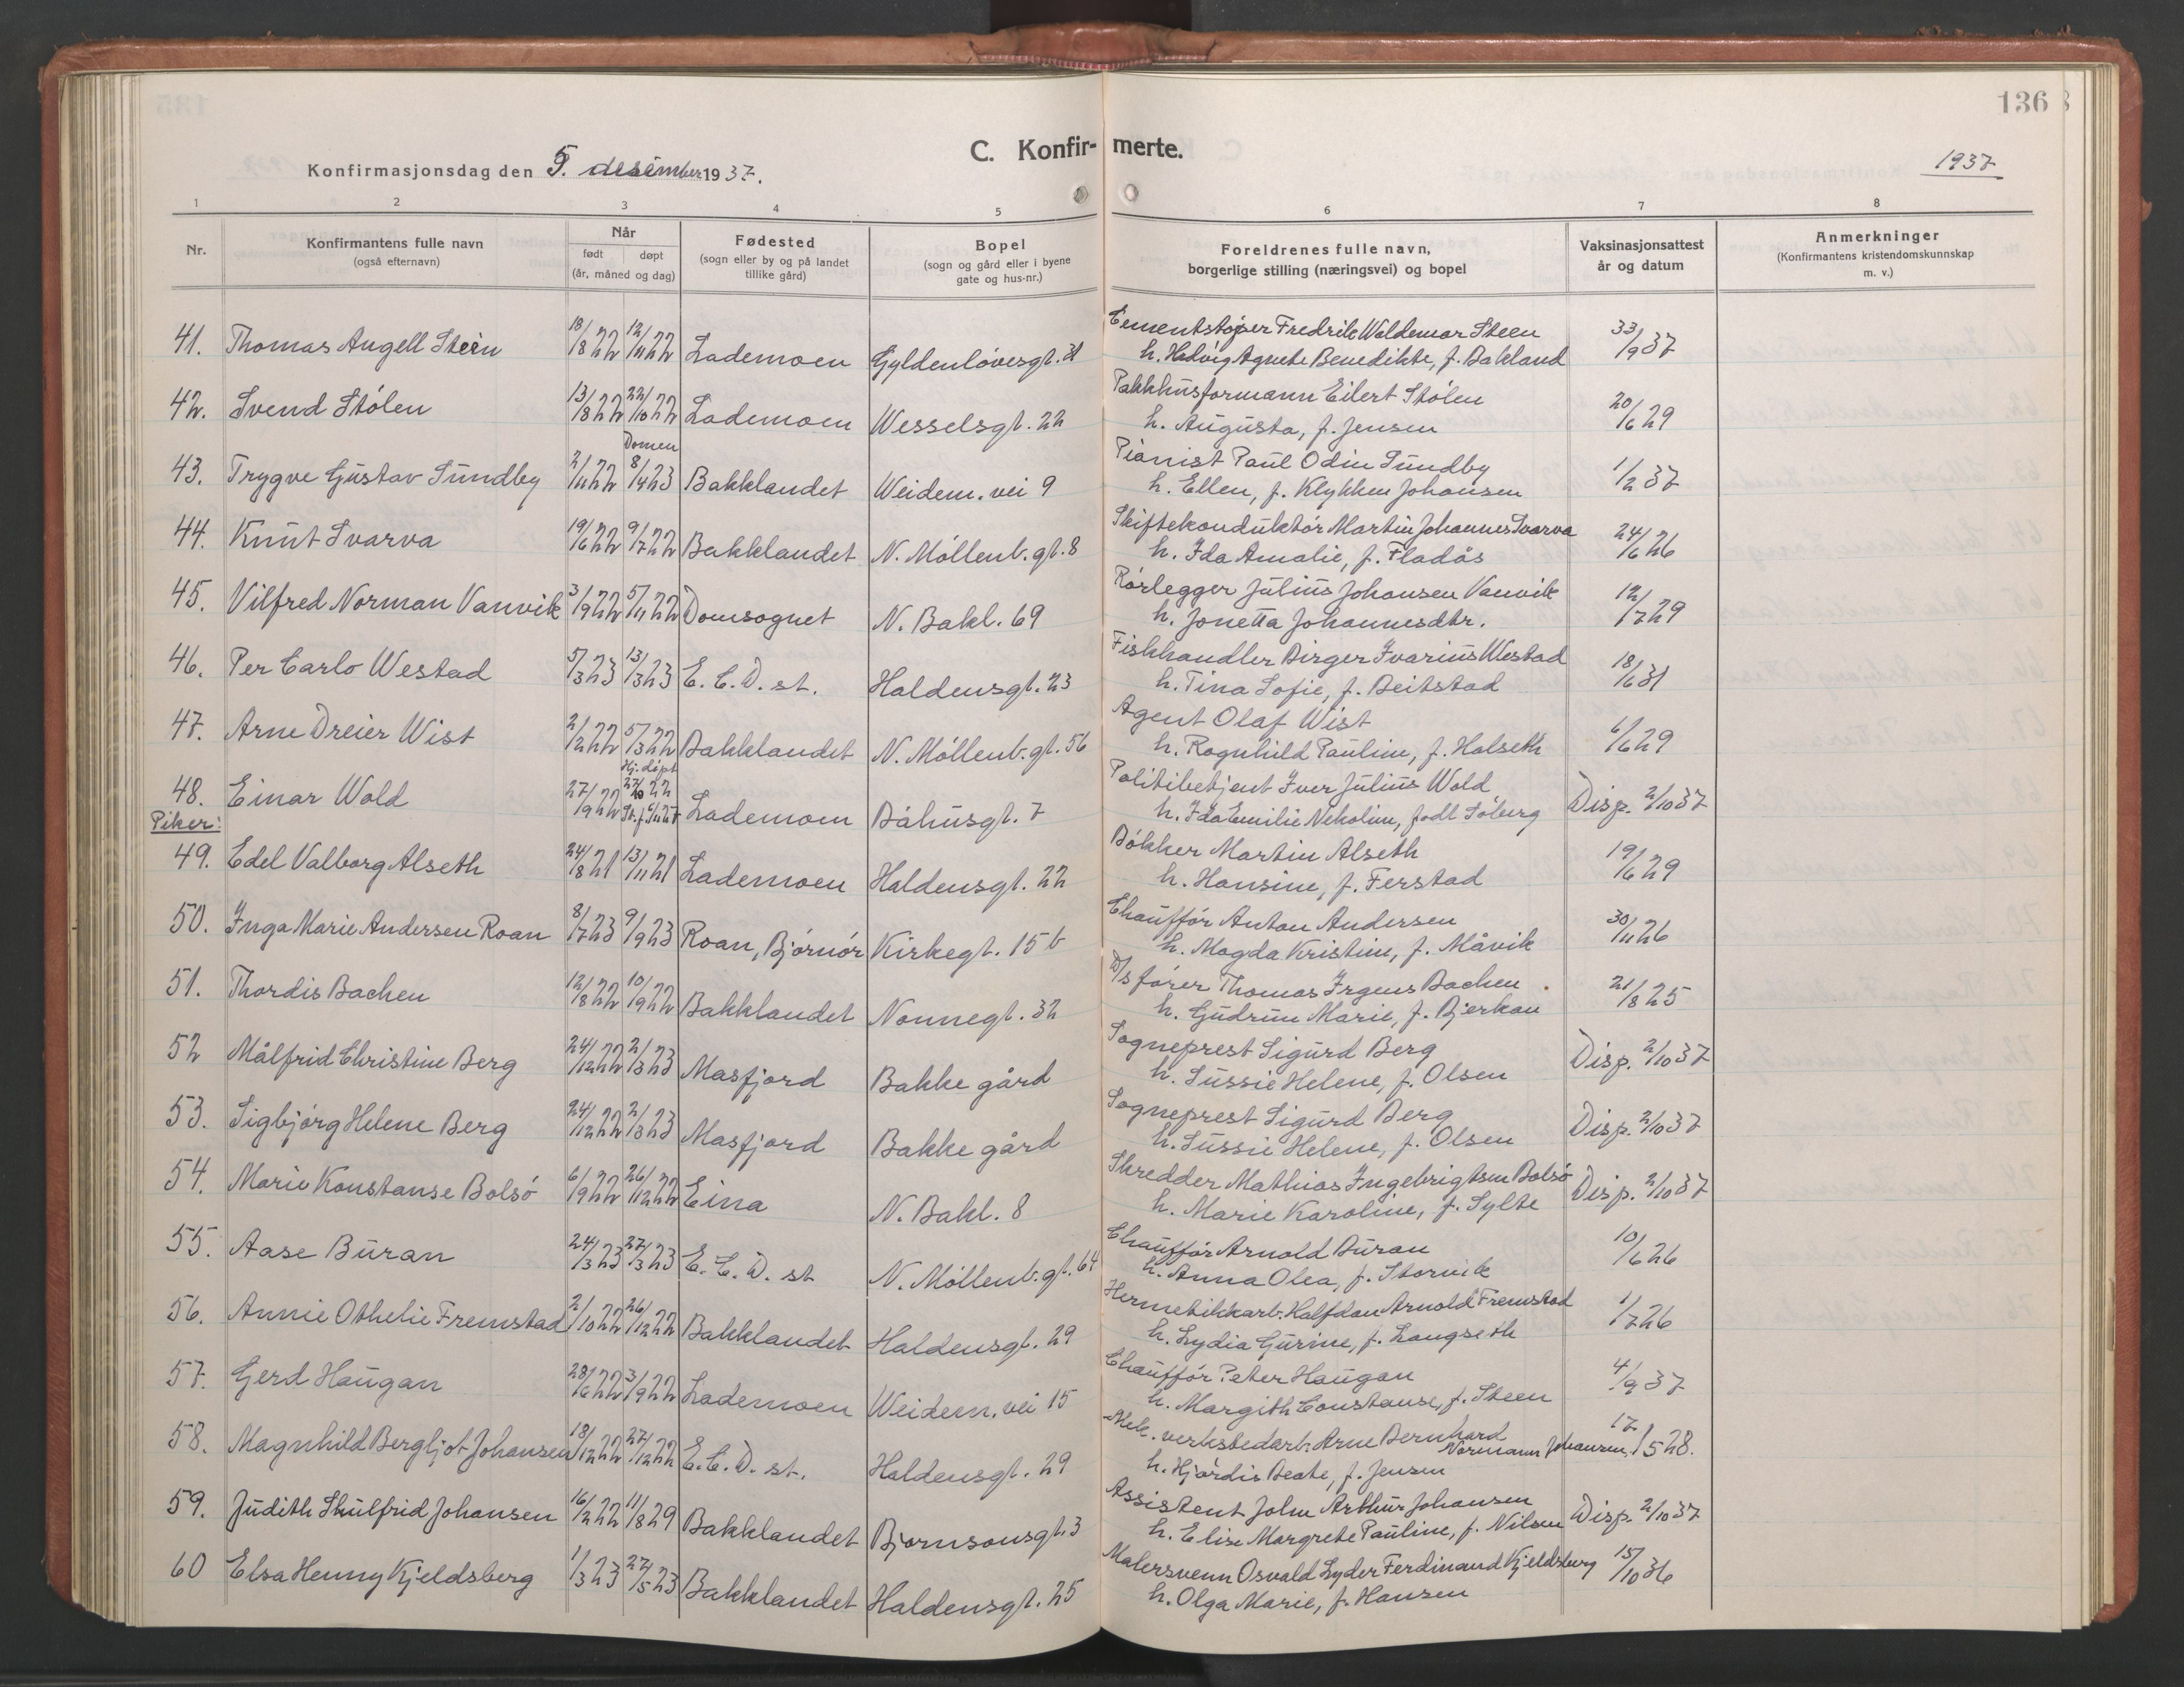 136
C. Konfirmerte.
Konfirmasjonsdag den 5. desember 1937.
1937
1 2 3 4 5 6 7 8
Nr.
Konfirmantens fulle navn
(også efternavn)
Når
født døpt
(år, måned og dag)
Fødested
(sogn eller by og på landet
tillike gård)
Bopel
(sogn og gård eller i byene
gate og hus-nr.)
Foreldrenes fulle navn,
borgerlige stilling (næringsvei) og bopel
Vaksinasjonsattest
år og datum
Anmerkninger
(Konfirmantens kristendomskunnskap
m. v.)
41. Thomas Angell Steen 18/8 22 12/11 22 Lademoen Gyldenløvesgt. Cementstøper Fredrik Waldemar Steen
h. Hedvig Agnete Benedikte, f. Bakland /9 37
42. Svend Stølen 13/8 22 22/10 22 Lademoen Wesselsgt. 22 Pakkhusformann Eilert Stølen
h. Augusta, f. Jensen 20/6 29
Domen
43. Trygve Gustav Sundby 2/11 22 8/4 23 Bakklandet Weidem. vei 9 Pianist Paul Odin Sundby
h. Ellen, f. Klykken Johansen 1/2 37
44. Knut Svarva 19/6 22 9/7 22 Bakklandet N. Møllenb. gt. 8 Skiftekonduktør Martin Johannes Svarva
h. Ida Amalie, f. Fladås 24/6 26
45. Vilfred Norman Vanvik 3/9 22 5/11 22 Domsognet N. Bakl. 69 Rørlegger Julius Johansen Vanvik
h. Jonetta Johannesdtr. 12/7 29
46. Per Carlo Westad 5/3 23 13/3 23 E. C. D. st. Haldensgt. 23 Fiskhandler Birger Ivarius Westad
h. Tina Sofie, f. Beitstad 18/6 31
47. Arne Dreier Wist 2/2 22 5/3 22 Bakklandet N. Møllenb. gt. 56 Agent Olaf Wist
h. Ragnhild Pauline, f. Halseth 6/6 29
Hj. døpt
48. Einar Wold 27/9 22 27/10 22 Lademoen Båhusgt. 7 Politibetjent Iver Julius Wold
h. Ida Emilie Nekoline, født Søberg Disp. 2/10 37
Piker:
49. Edel Valborg Alseth 24/8 21 13/11 21 Lademoen Haldensgt. 22 Bøkker Martin Alseth
h. Hansine, f. Ferstad 19/6 29
50. Inga Marie Andersen Roan 8/7 23 9/9 23 Roan, Bjørnør Kirkegt. 15 b Chauffør Anton Andersen
h. Magda Kristine, f. Måvik 30/11 26
51. Thordis Bachen 12/8 22 10/9 22 Bakklandet Nonnegt. 32 D/s fører Thomas Irgens Bachen
h. Gudrun Marie, f. Bjerkan 21/8 25
52 Målfrid Christine Berg 24/12 22 2/3 23 Masfjord Bakke gård Sogneprest Sigurd Berg
h. Sussie Helene, f. Olsen Disp. 2/10 37
53. Sigbjørg Helene Berg 24/12 22 2/3 23 Masfjord Bakke gård Sogneprest Sigurd Berg
h. Sussie Helene, f. Olsen Disp. 2/10 37
54. Marie Konstanse Bolsø 6/9 22 26/12 22 Eina N. Bakl. 8 Skredder Mathias Ingebrigtsen Bolsø
h. Marie Karoline, f. Sylte Disp. 2/10 37
55. Aase Buran 24/3 23 27/3 23 E. C. D. st N. Møllenb. gt. 64 Chauffør Arnold Buran
h. Anna Olea, f. Storvik 10/6 26
56. Annie Othelie Fremstad 2/10 22 26/12 22 Bakklandet Haldensgt. 29 Hermetikkarb. Halfdan Arnold Fremstad
h. Lydia Gurine, f. Langseth 1/7 26
57. Gerd Haugan 28/6 22 3/9 22 Lademoen Weidem. vei 15 Chauffør Peter Haugan
h. Margith Constanse, f. Steen 4/9 37
58. Magnhild Bergljot Johansen 18/12 22 27/12 22 E. C. D. st. Haldensgt. 29 Mek. verkstedarb. Arne Bernhard
Normann Johansen
h. Hjørdis Beate, f. Jensen 17/5 28.
59. Judith Skulfrid Johansen 16/2 22 11/8 29 Bakklandet Bjørnsonsgt. 3 Assistent John Arthur Johansen
h. Elise Margrete Pauline, f. Nilsen Disp. 2/10 37
60 Elsa Henny Kjeldsberg 1/3 23 27/5 23 Bakklandet Haldensgt. 25 Malersvenn Osvald Lyder Ferdinand Kjeldsberg
h. Olga Marie, f. Hansen 15/10 36